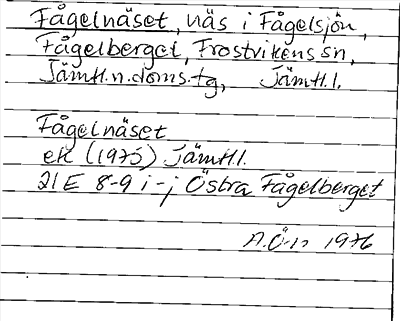 Fågelnäset, näs i Fågelsjön,
Fågelberget, Frostvikens sn,
Jämtl.n.doms.tg, Jämtl.l.
Fågelnäset
ek (1975) Jämtl.l.
21E 8-9 i-j Östra Fågelberget
1976